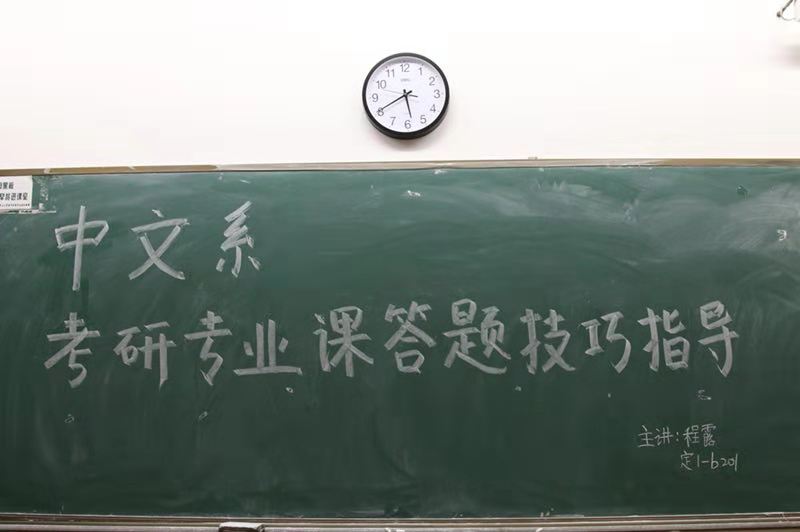 12
1
2
3
4
5
6
7
8
9
10
11
中文系
考研专业课答题技巧指导
主讲:程露
定1-b201